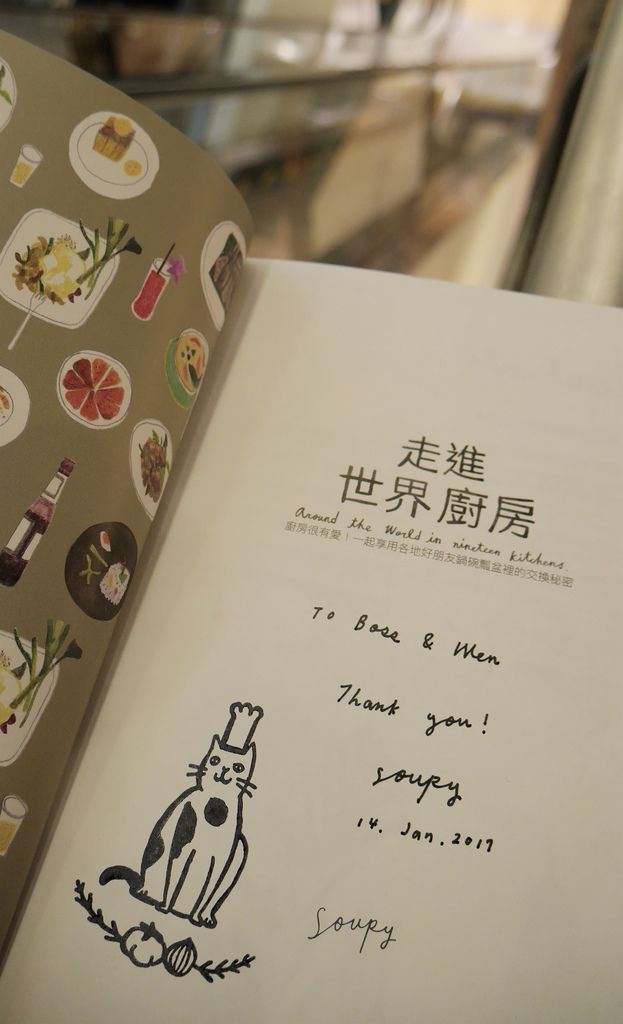 走進
世界廚房
Around the World in nineteen kitchens.
廚房很有愛！一起享用各地好朋友鍋碗瓢盆裡的交換秘密
To Bose & Wen
Thank you!
soupy
14. Jan. 2017
Soupy